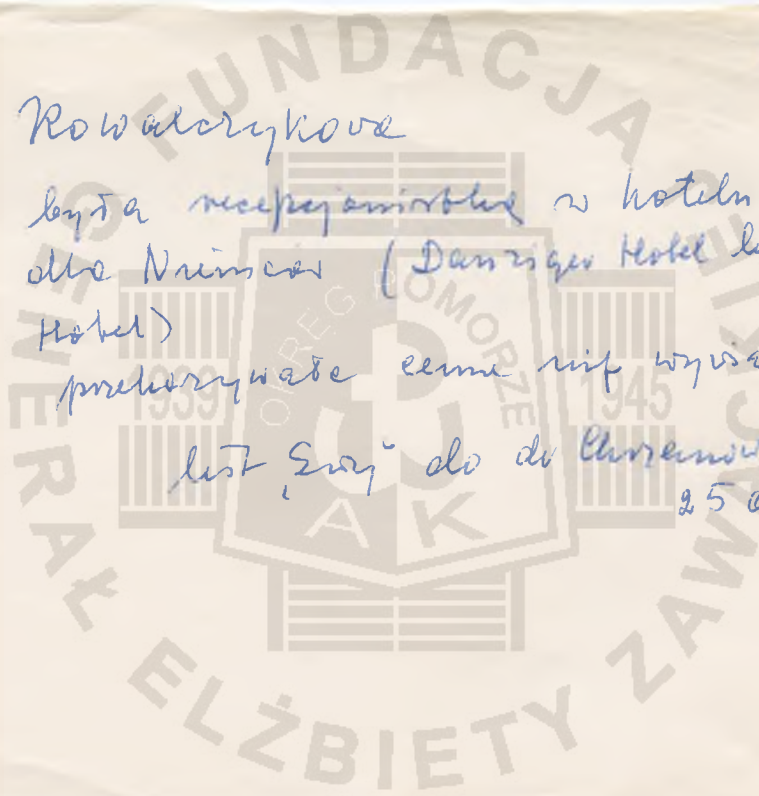 Kowalczykova
była recepcjonistką w hotelu
dla Niemców (Danziger Hotel
Hotel)
przekazywała cenne inf
list do dr
25
FUNDACJA GENERAŁ ELŻBIETY ZAWACKIEJ
OKRĘG POMORZE
1939 1945
AK